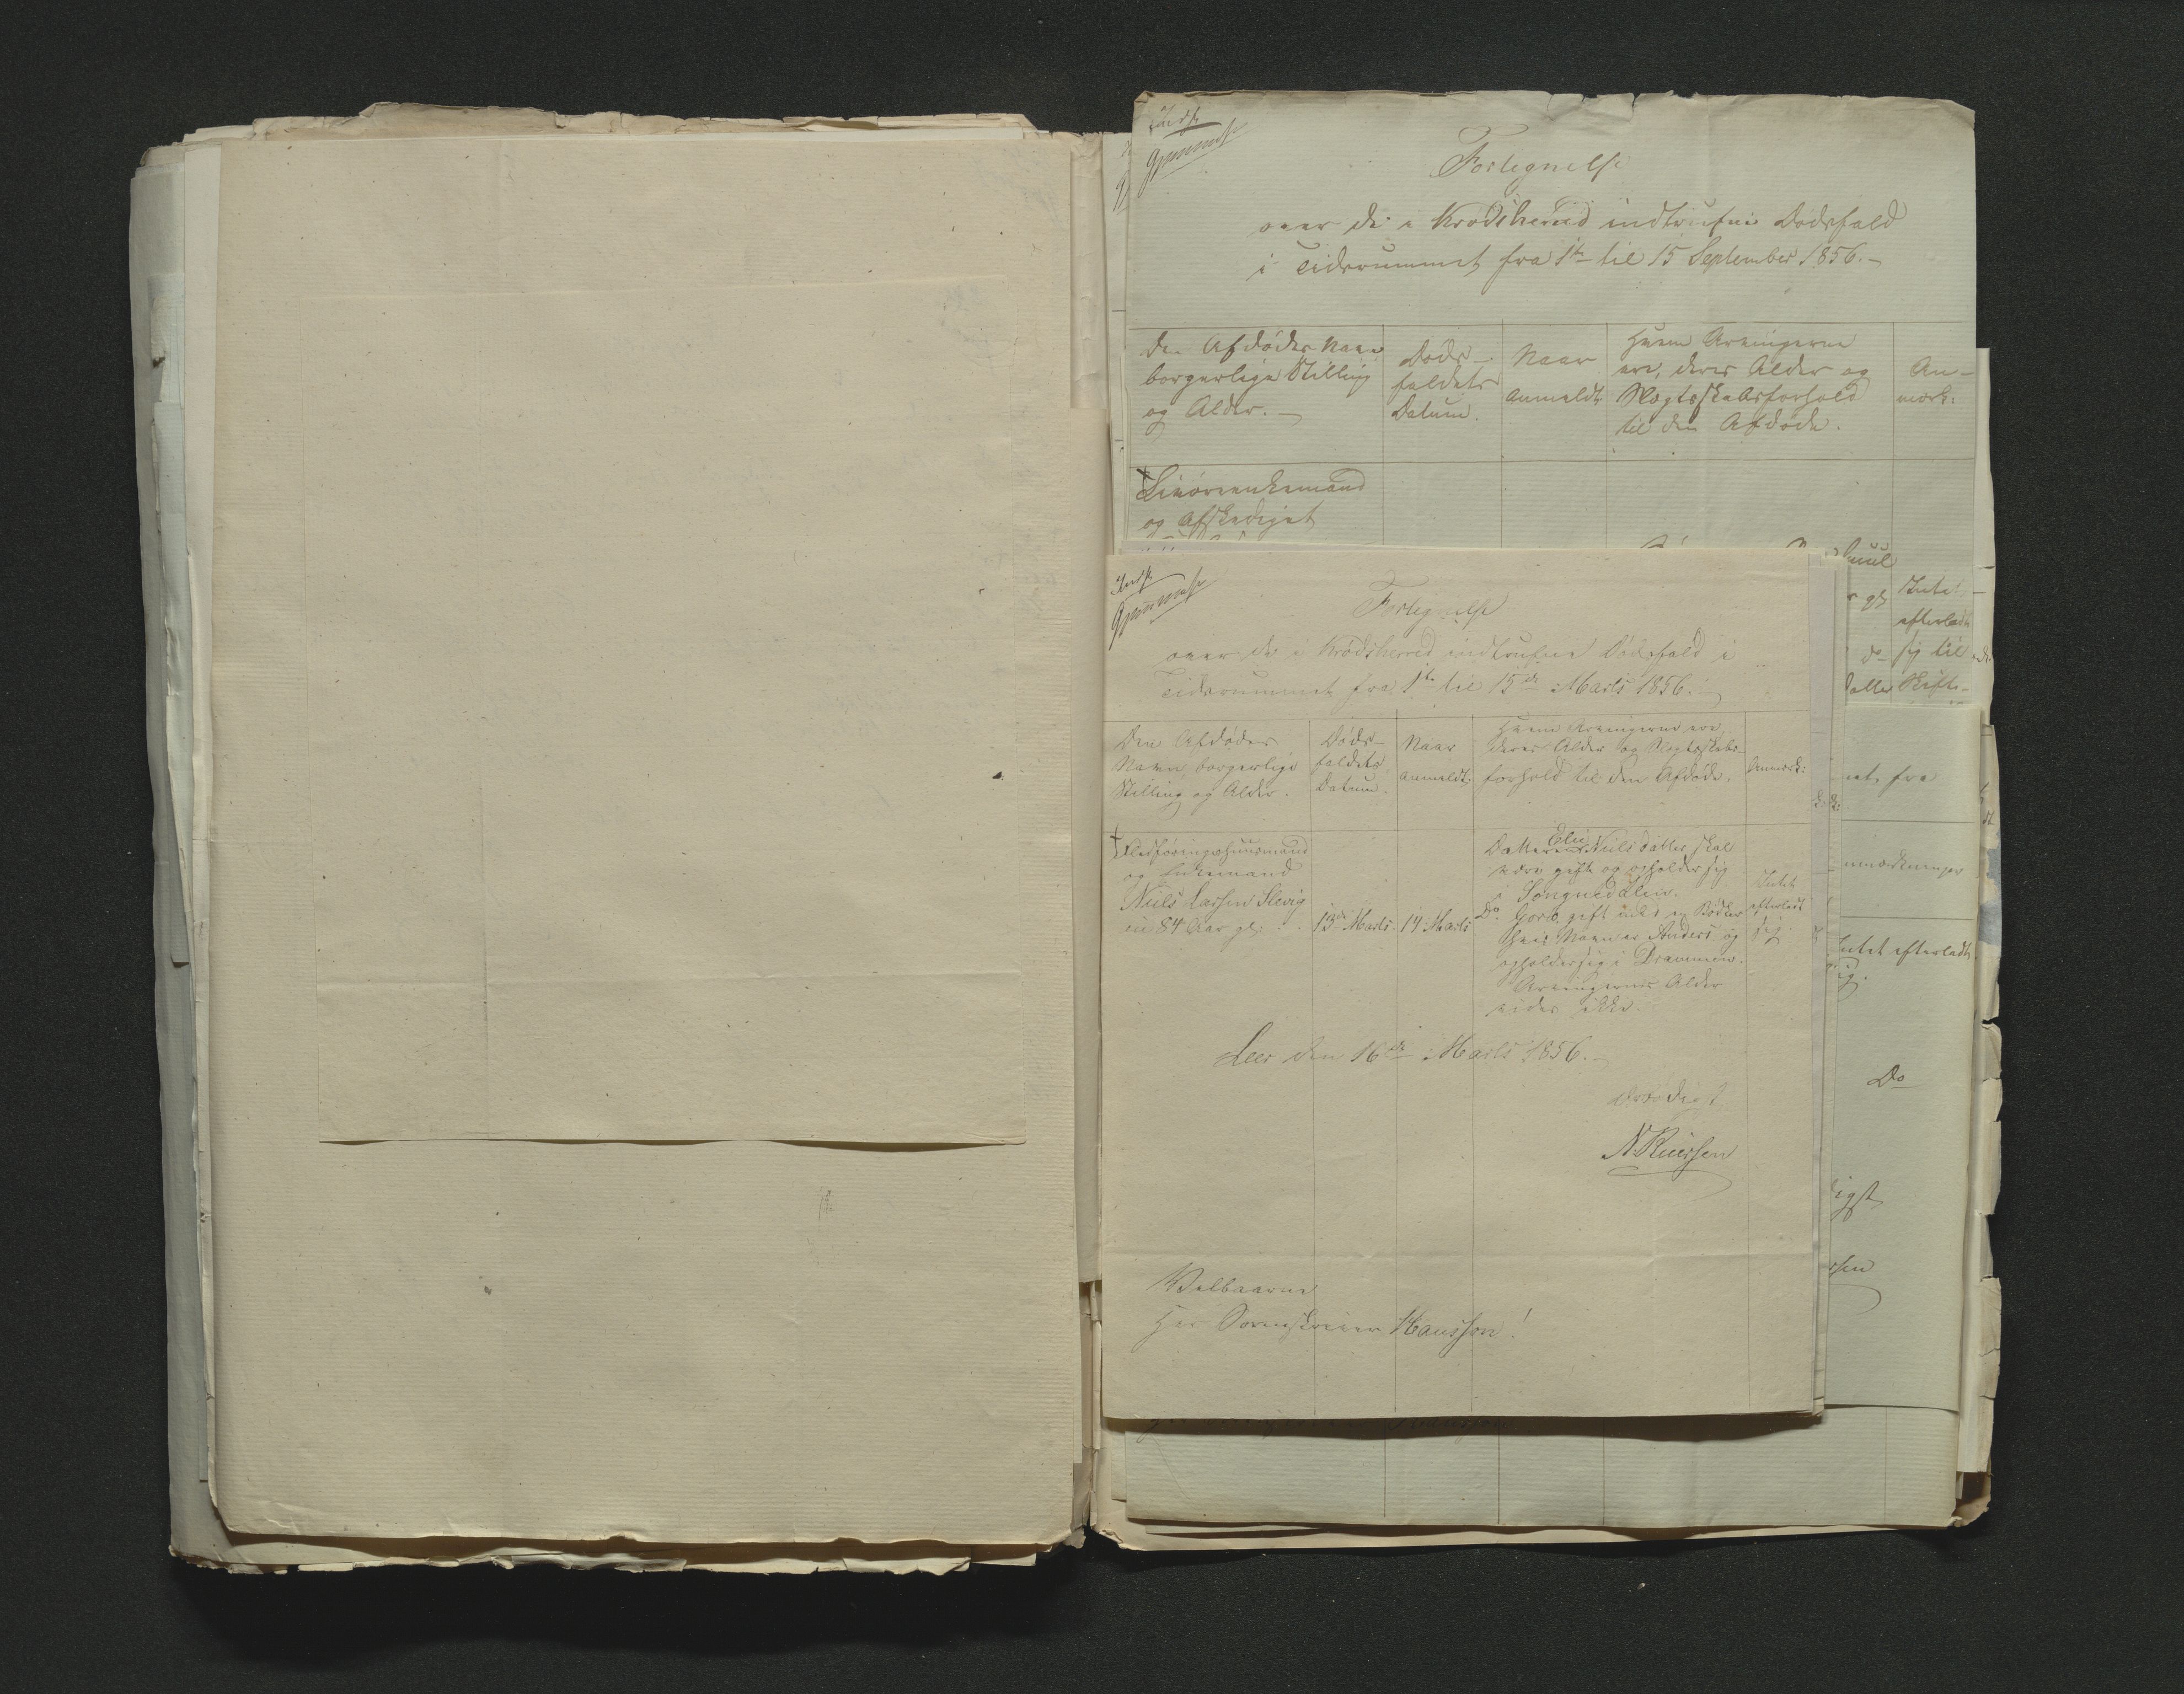 Fortegnelse
over de i Krødsherred indtrufne Dødsfald
i Tidsrummet fra 1ste til 15 September 1856.-
Den Afdødes Navn
borgerlige Stilling
og Alder.-
Døds-
faldets
Datum.
Naar
anmeldt
Hvem Arvingerne
ere, deres Alder og
Slægtsskabsforhold
til den Afdøde.
An-
mærk:
og Afskediget
Intet
efterladt
sig til
Skifte-
Fortegnelse
over de i Krødsherred indtrufne Dødsfald i
Tidsrummet fra 1ste til 15de Marts 1856.-
Den Afdødes
Navn, borgerlige
Stilling og Alder.
Døds-
faldets
Datum.
Naar
anmeldt.
Hvem Arvingerne ere,
deres Alder og Slægtsskabs-
forhold til den Afdøde.
Anmærk:
Næsføringshuusmand
og Enkemand
Niels Larsen Slevig
84 Aar gl.
13de Marts.
14 Marts
Datteren Eli Nielsdatter skal
være gift og opholder sig
i Songnedalen.
Do Goro, gift med en Bødker
hvis Navn er Anders og
opholder sig i Drammen.
Arvingernes Alder
vides ikke.
Intet
efterladt
sig.
Leer den 16de Marts 1856.-
Ærbødigst
Velbaarne
Herr Sorenskriver Hansson!
fra
Intet efterladt
sig.
Do